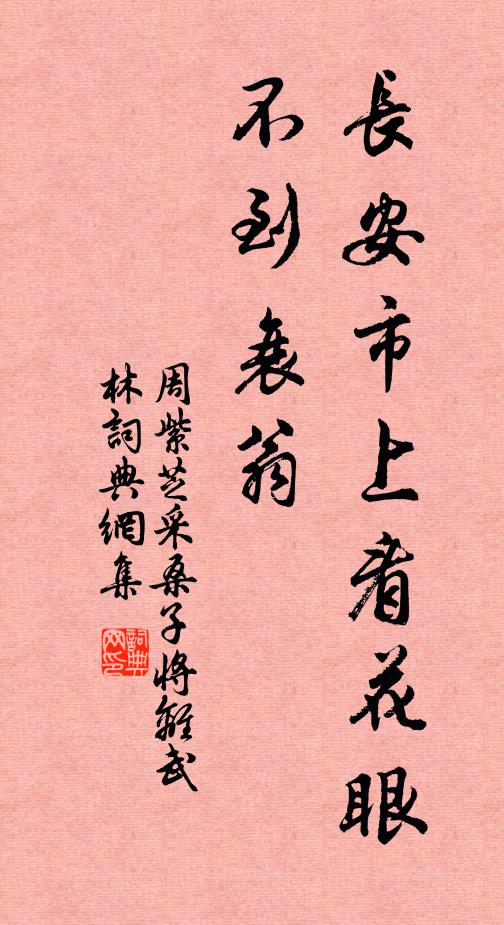 長安市上看花眼
不到衰翁
周紫芝采桑子將離武
林詞典網集
詞典
网印